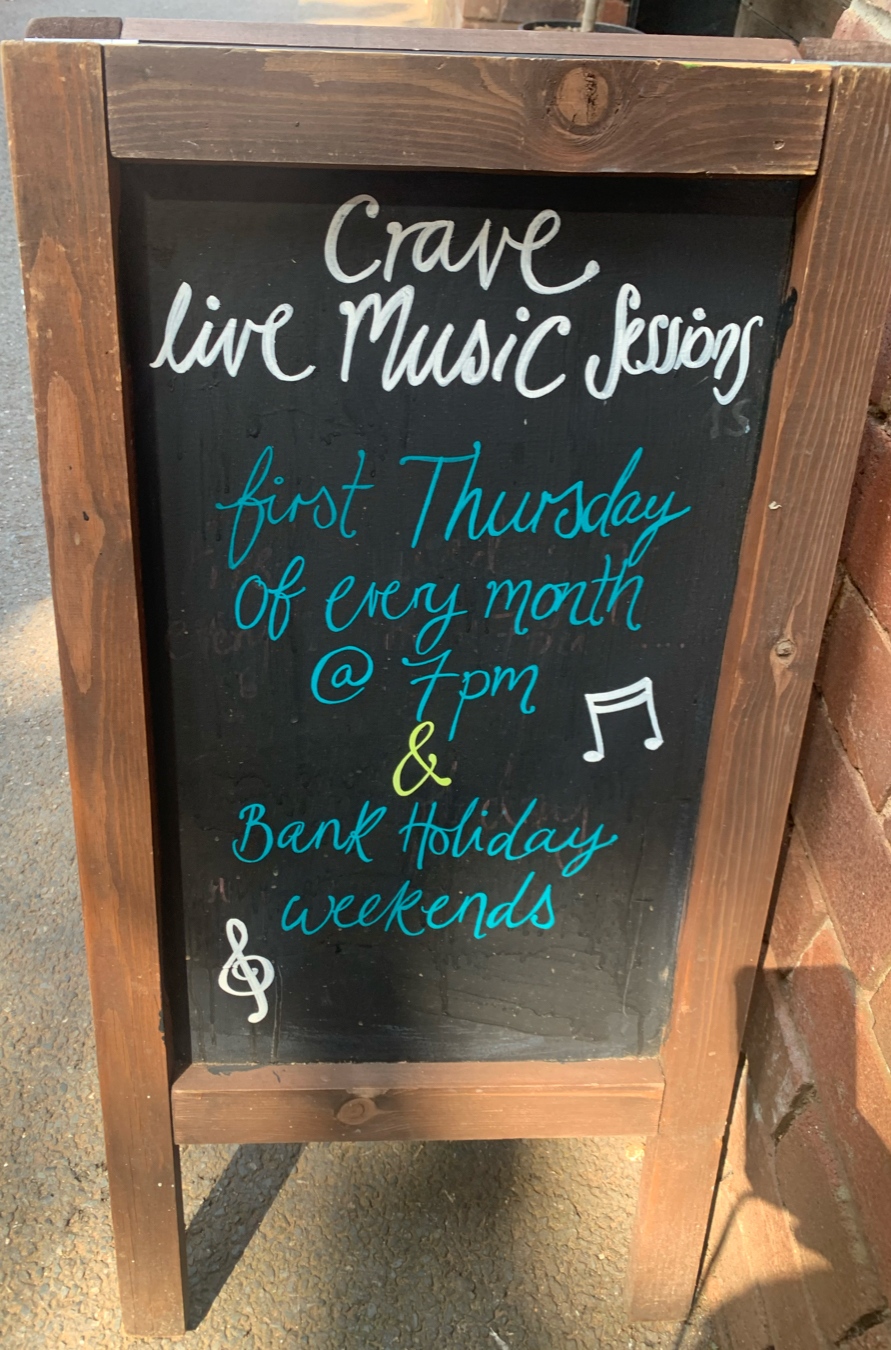 Crave
live Music Sessions
first Thursday
of every month
@ 7pm
&
Bank Holiday
weekends